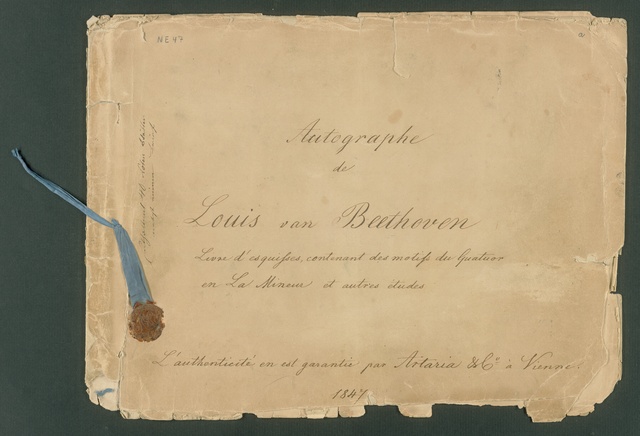 NE 47
a
Autographe
de
Louis van Beethoven
Livre d'esquisses, contenant des motifs du Quatuor
en La Mineur et autres études
L'authenticité en est garantie par Artaria & Cº à Vienne.
1847